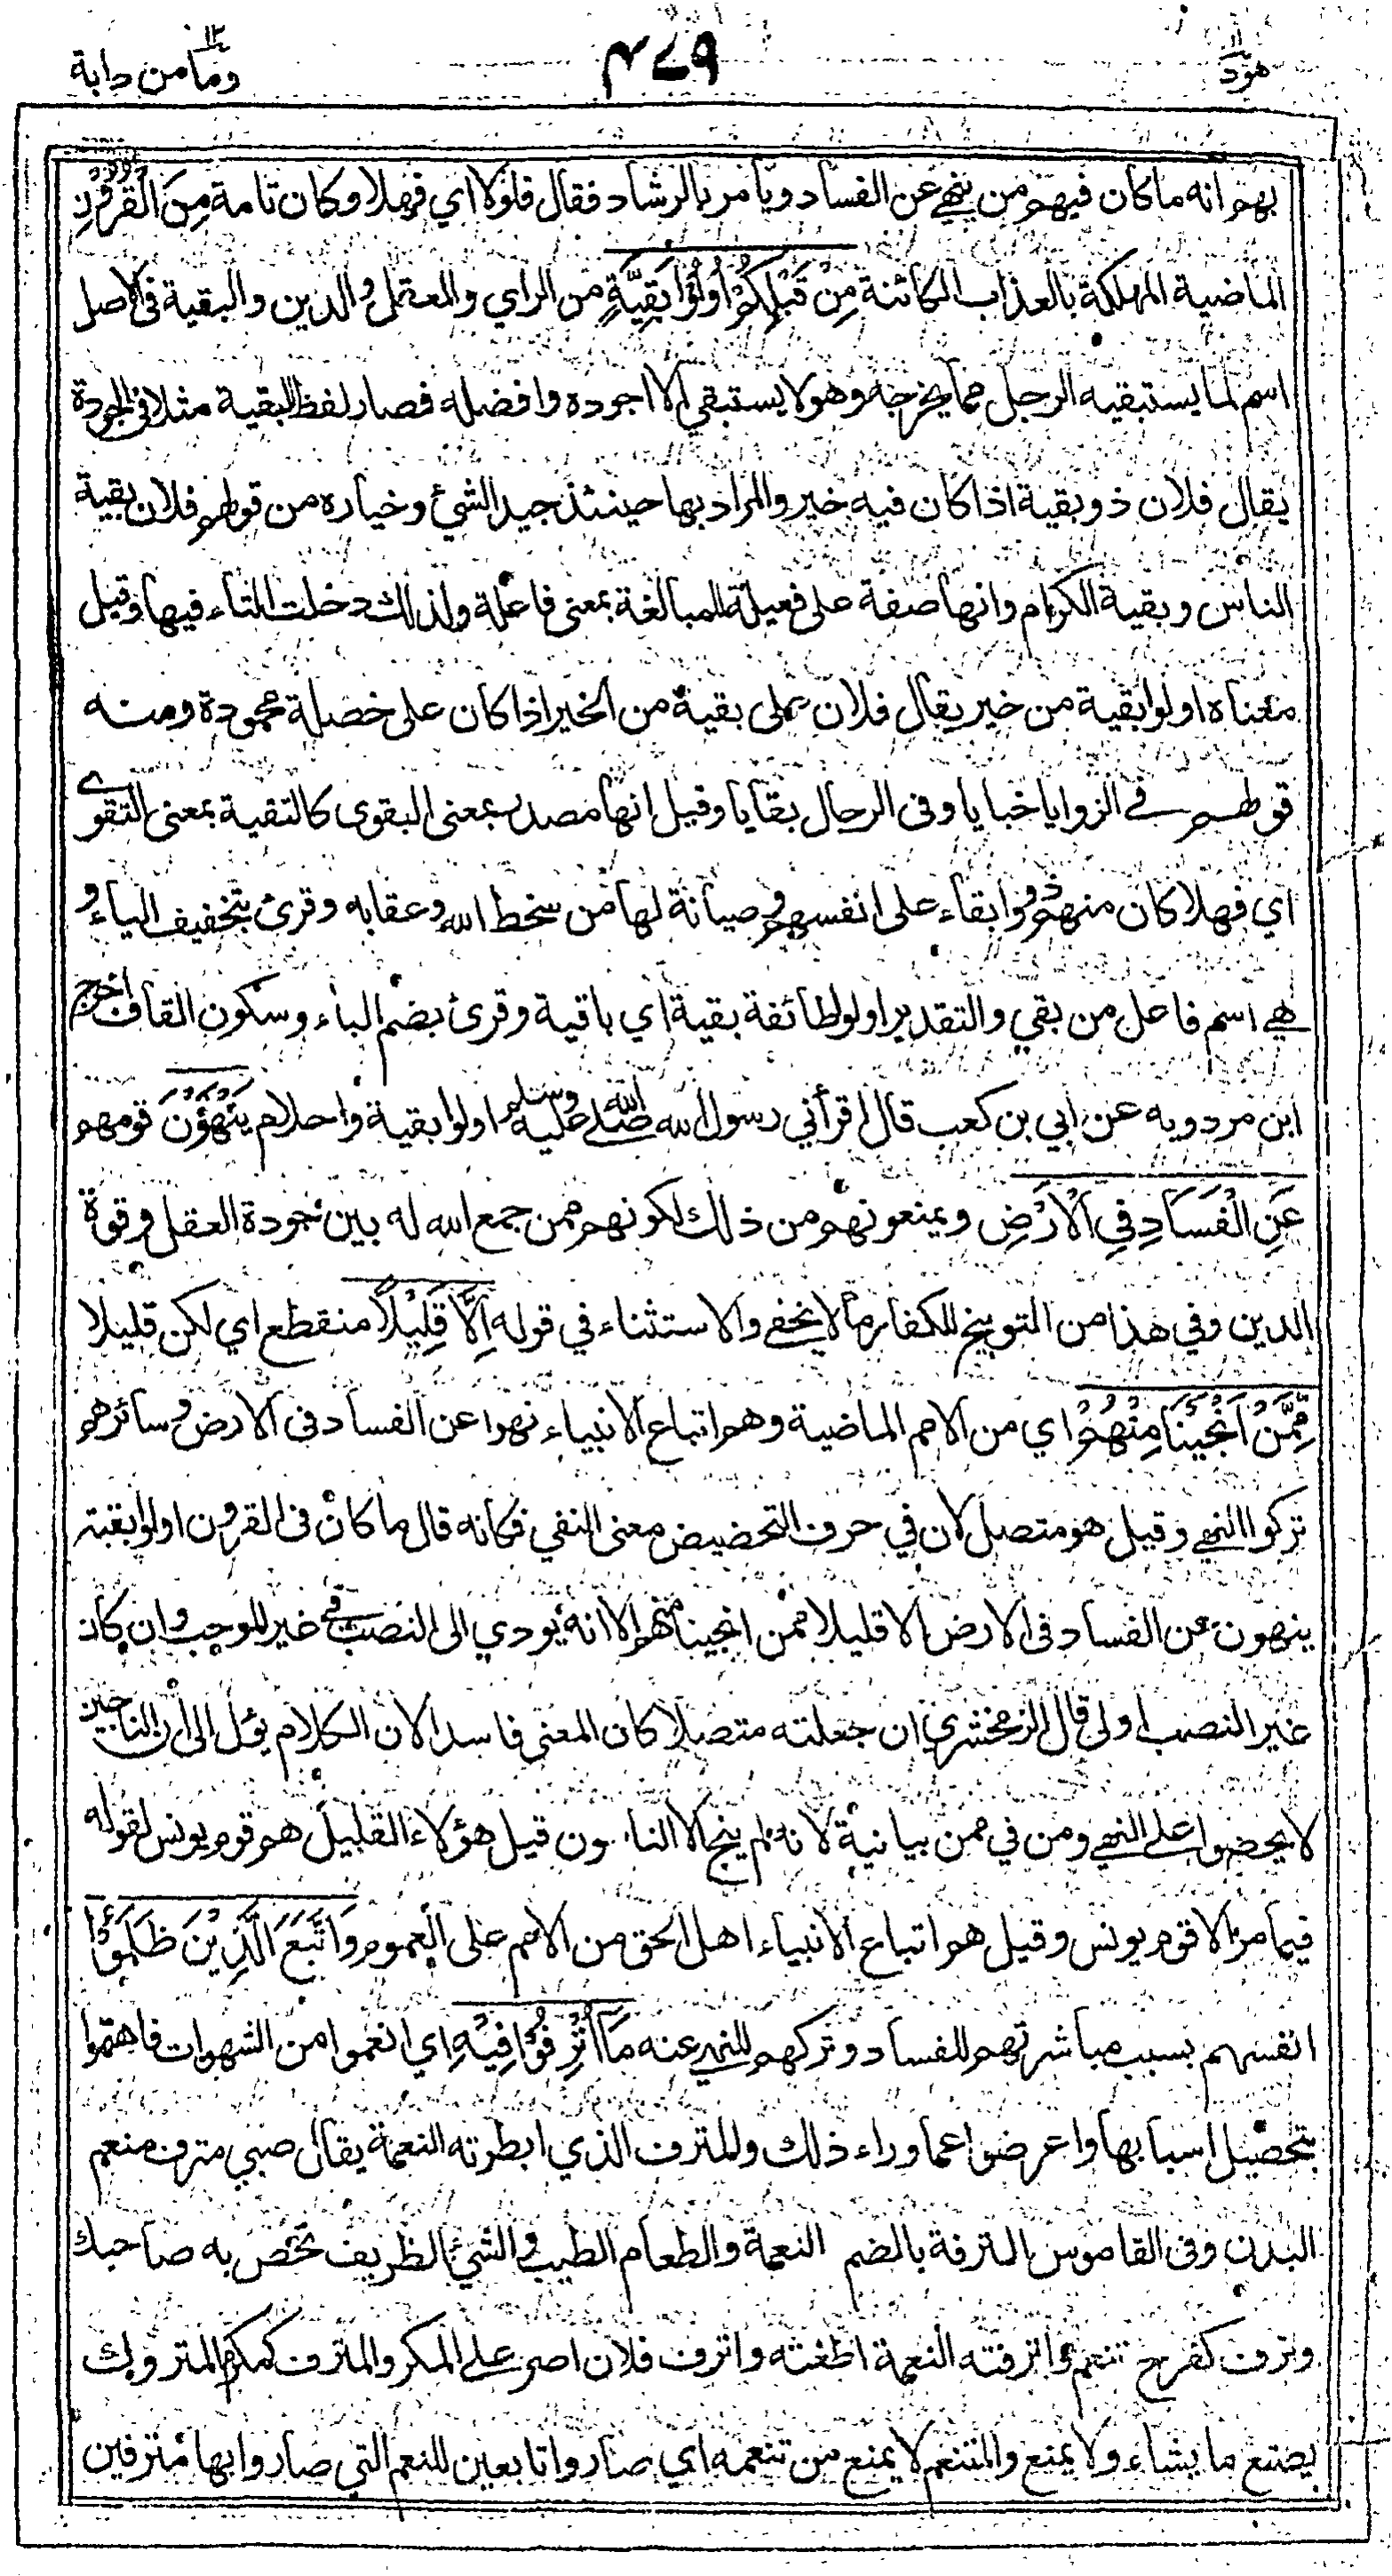 هود ١١
٤٧٩
وما من دابة ١٢
بهم انه ما كان فيهم من ينهى عن الفساد ويأمر بالرشاد فقال فلولا اي فهلا وكان تامة مِنَ الْقُرُوْنِ
الماضية المهلكة بالعذاب الكائنة مِنْ قَبْلِكُمْ اُولُوْا بَقِيَّةٍ من الراي والعقل والدين والبقية في الاصل
اسم لما يستبقيه الرجل مما يخرجه وهو لا يستبقي الا اجوده وافضله فصار لفظ البقية مثلا في الجودة
يقال فلان ذو بقية اذا كان فيه خير والمراد بها حينئذ جيد الشيء وخياره من قولهم فلان بقية
الناس وبقية الكرام وانها صفة على فعيلة للمبالغة بمعنى فاعلة ولذلك دخلت التاء فيها وقيل
معناه اولوا بقية من خير يقال فلان على بقية من الخير اذا كان على خصلة محمودة ومنه
قولهم في الزوايا خبايا وفي الرجال بقايا وقيل انها مصدر بمعنى البقوى كالتقية بمعنى التقوى
اي فهلا كان منهم ذوو ابقاء على انفسهم وصيانة لها من سخط الله وعقابه وقرئ بتخفيف الياء و
هي اسم فاعل من بقي والتقدير اولو طائفة بقية اي باقية وقرئ بضم الباء وسكون القاف اخرج
ابن مردويه عن ابي بن كعب قال اقرأني رسول الله صلى الله عليه وسلم اولوا بقية واحلام يَنْهَوْنَ قومهم
عَنِ الْفَسَادِ فِي الْاَرْضِ ويمنعونهم من ذلك لكونهم ممن جمع الله له بين جودة العقل وقوة
الدين وفي هذا من التوبيخ للكفار ما لا يخفى والاستثناء في قوله اِلَّا قَلِيْلًا منقطع اي لكن قليلا
مِّمَّنْ اَنْجَيْنَا مِنْهُمْ اي من الامم الماضية وهم اتباع الانبياء نهوا عن الفساد في الارض وسائرهم
تركوا النهي وقيل هو متصل لان في حرف التحضيض معنى النفي فكانه قال ما كان في القرون اولوا بقية
ينهون عن الفساد في الارض الا قليلا ممن انجينا منهم الا انه يؤدي الى النصب في غير الموجب وان كان
غير النصب اولى قال الزمخشري ان جعلته متصلا كان المعنى فاسدا لان الكلام يؤل الى ان الناجين
لا يحضوا على النهي ومن في ممن بيانية لانه لم ينج الا الناهون قيل هؤلاء القليل هم قوم يونس لقوله
فيما مر الا قوم يونس وقيل هم اتباع الانبياء اهل الحق من الامم على العموم وَاتَّبَعَ الَّذِيْنَ ظَلَمُوْا
انفسهم بسبب مباشرتهم للفساد وتركهم للنهي عنه مَا اُتْرِفُوْا فِيْهِ اي انعموا من الشهوات فاهتموا
بتحصيل اسبابها واعرضوا عما وراء ذلك والمترف الذي ابطرته النعمة يقال صبي مترف منعم
البدن وفي القاموس الترفة بالضم النعمة والطعام الطيب والشيء الظريف تخص به صاحبك
وترف كفرح تنعم واترفته النعمة اطغته واترف فلان اصر على المكر والمترف كمكرم المتروك
يصنع ما يشاء ولا يمنع والمتنعم لا يمنع من تنعمه اي صاروا تابعين للنعم التي صاروا بها مترفين